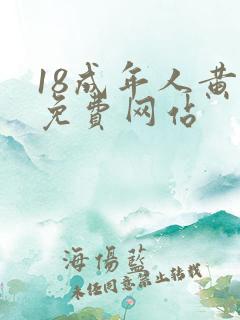 18成年人黄
免費网站
海伤蓝
未经同意禁止转载